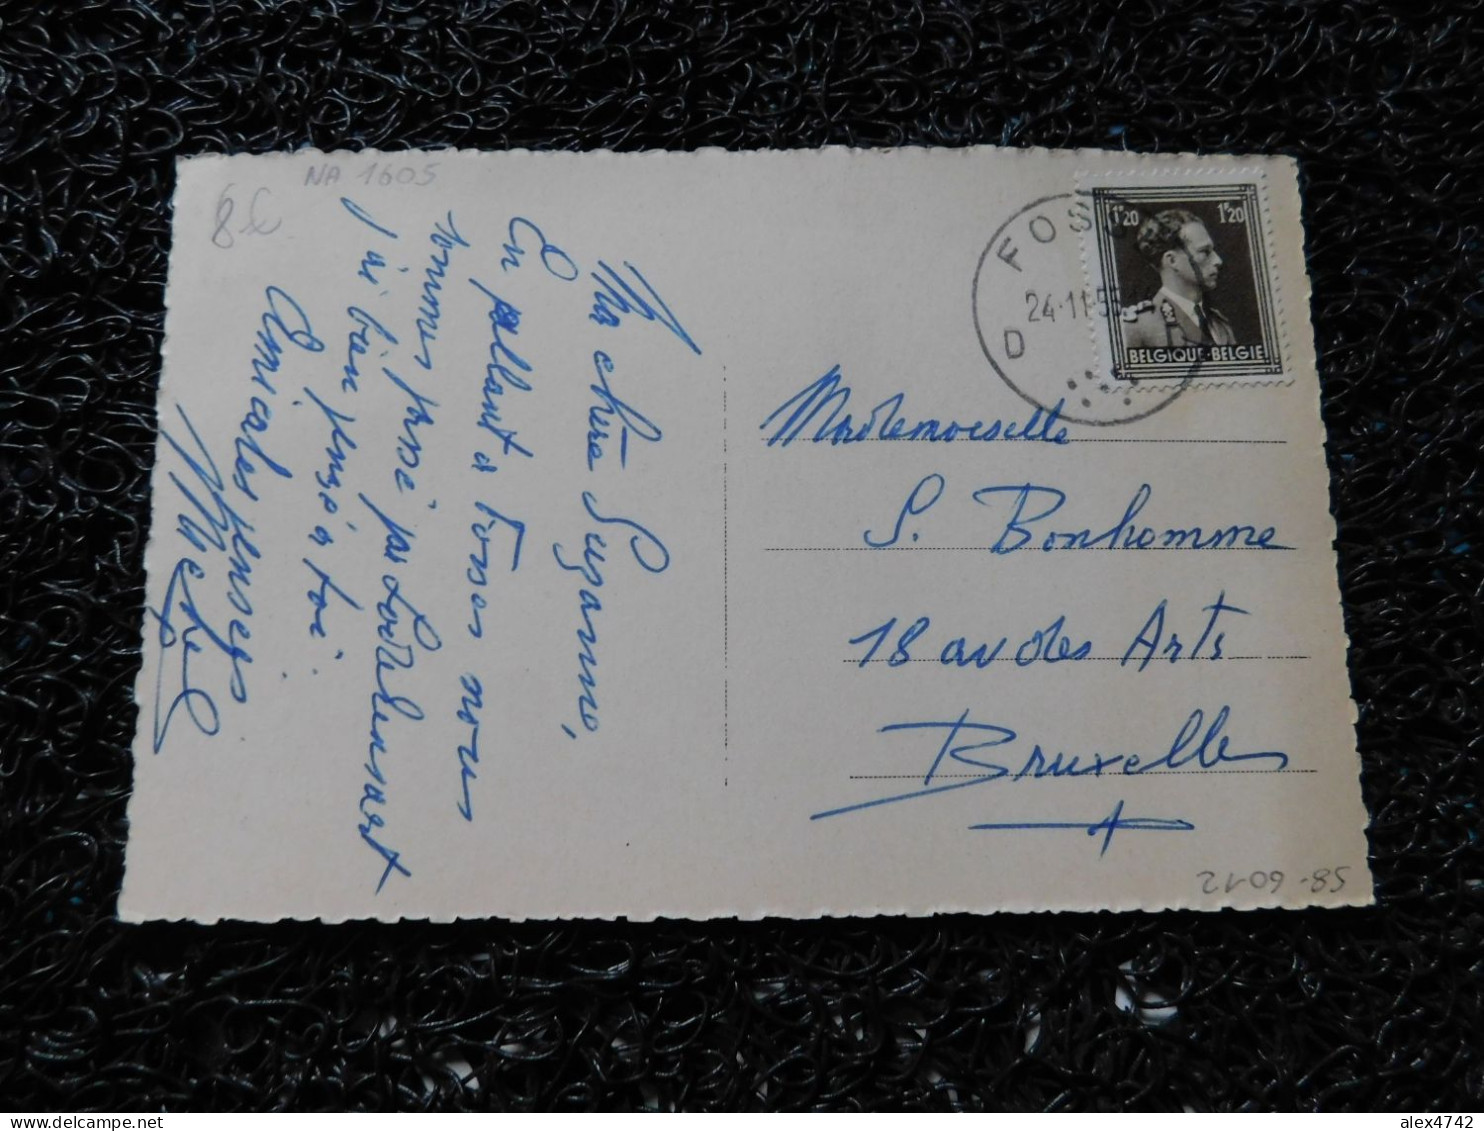 NA 1605
8€
Ma chère Suzanne,
En allant à Fosses nous
sommes passé par
j'ai bien pensé à toi.
Amicales pensées
FOSS
24-11-5
D
1F20 1F20
BELGIQUE-BELGIE
Mademoiselle
S. Bonhomme
18 av des Arts
Bruxelles
58-6012
alex4742